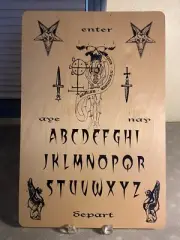 enter
aye nay
ABCDEFGHI
JKLMNOPQR
STUVWXYZ
depart